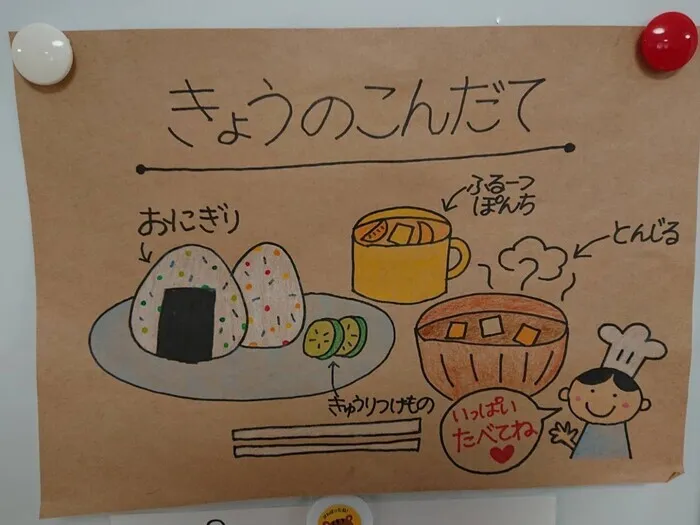 きょうのこんだて
ふるーつ
ぽんち
おにぎり
とんじる
きゅうりつけもの
いっぱい
たべてね